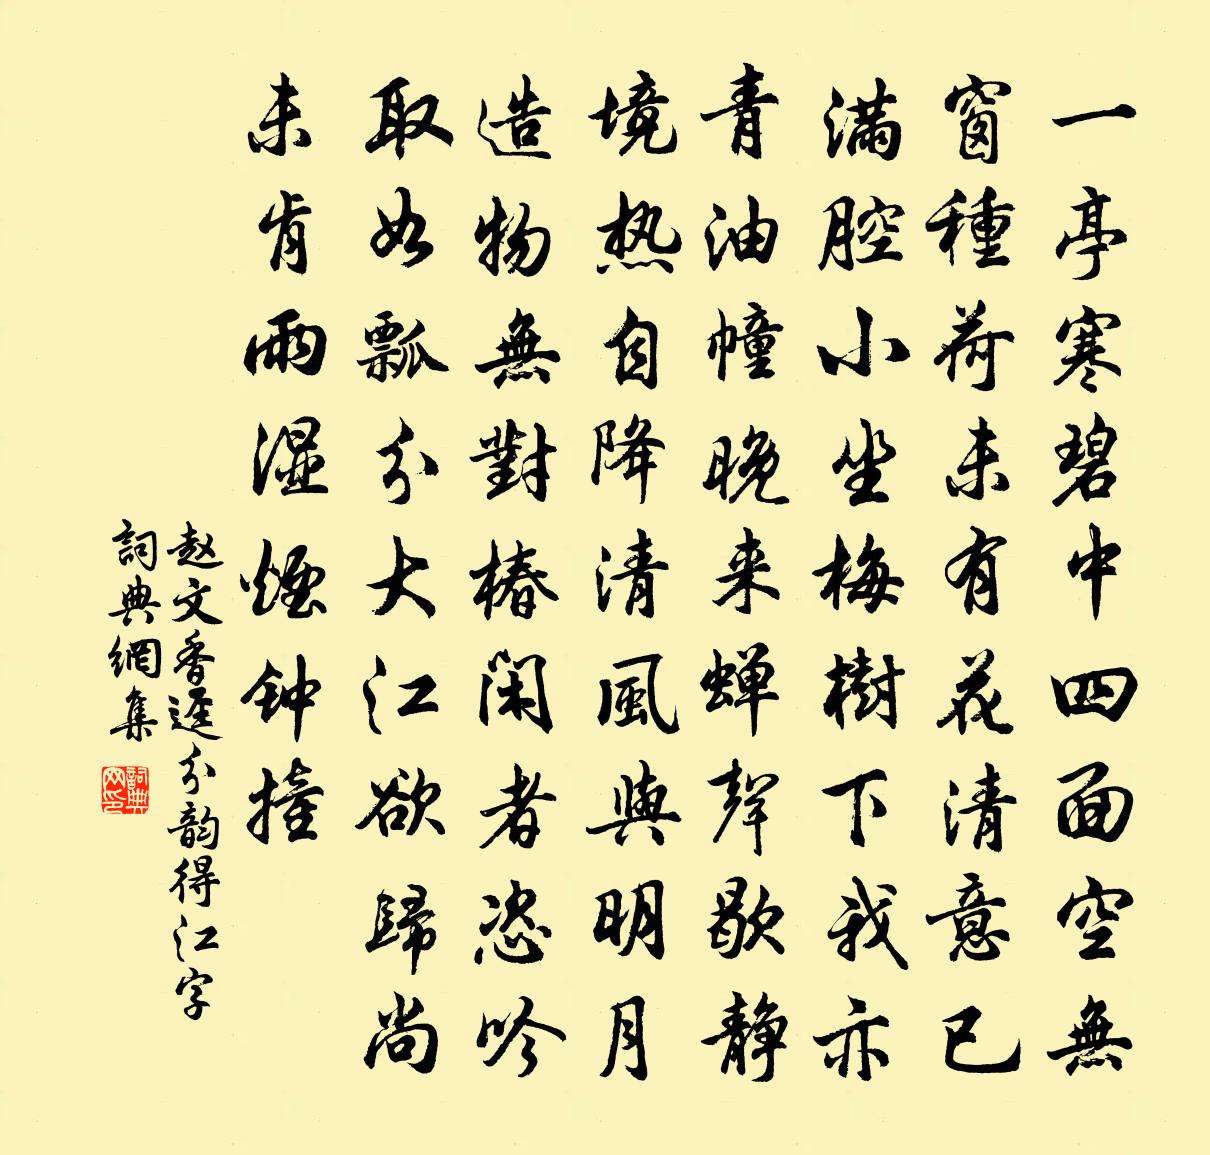 一亭寒碧中四面空無
窗種荷未有花清意已
滿腔小坐梅樹下我亦
青油幢晚来蝉聲歇静
境热自降清風與明月
造物無對椿闲者恣吟
取如瓢分大江欲歸尚
未肯雨湿煙钟撞
赵文香逕分韵得江字
詞典網集
詞典网印